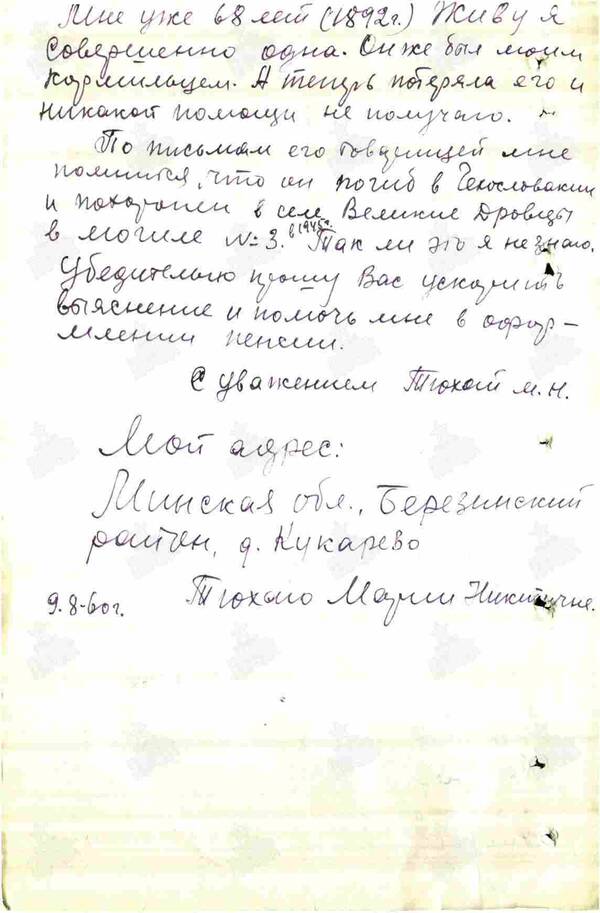 Мне уже 68 лет (1892г.) Живу я
совершенно одна. Он же был моим
кормильцем. А теперь потеряла его и
никакой помощи не получаю.
По письмам его товарищей мне
помнится, что он погиб в Чехословакии
и похоронен в селе Великие Дровцы
в могиле № 3. в 1945г. Так ли это я не знаю.
Убедительно прошу Вас ускорить
выяснение и помочь мне в офор-
млении пенсии.
С уважением Тюхай М.Н.
Мой адрес:
Минская обл., Березинский
район, д. Кукарево
9.8-60г.
Марии Никитичне.